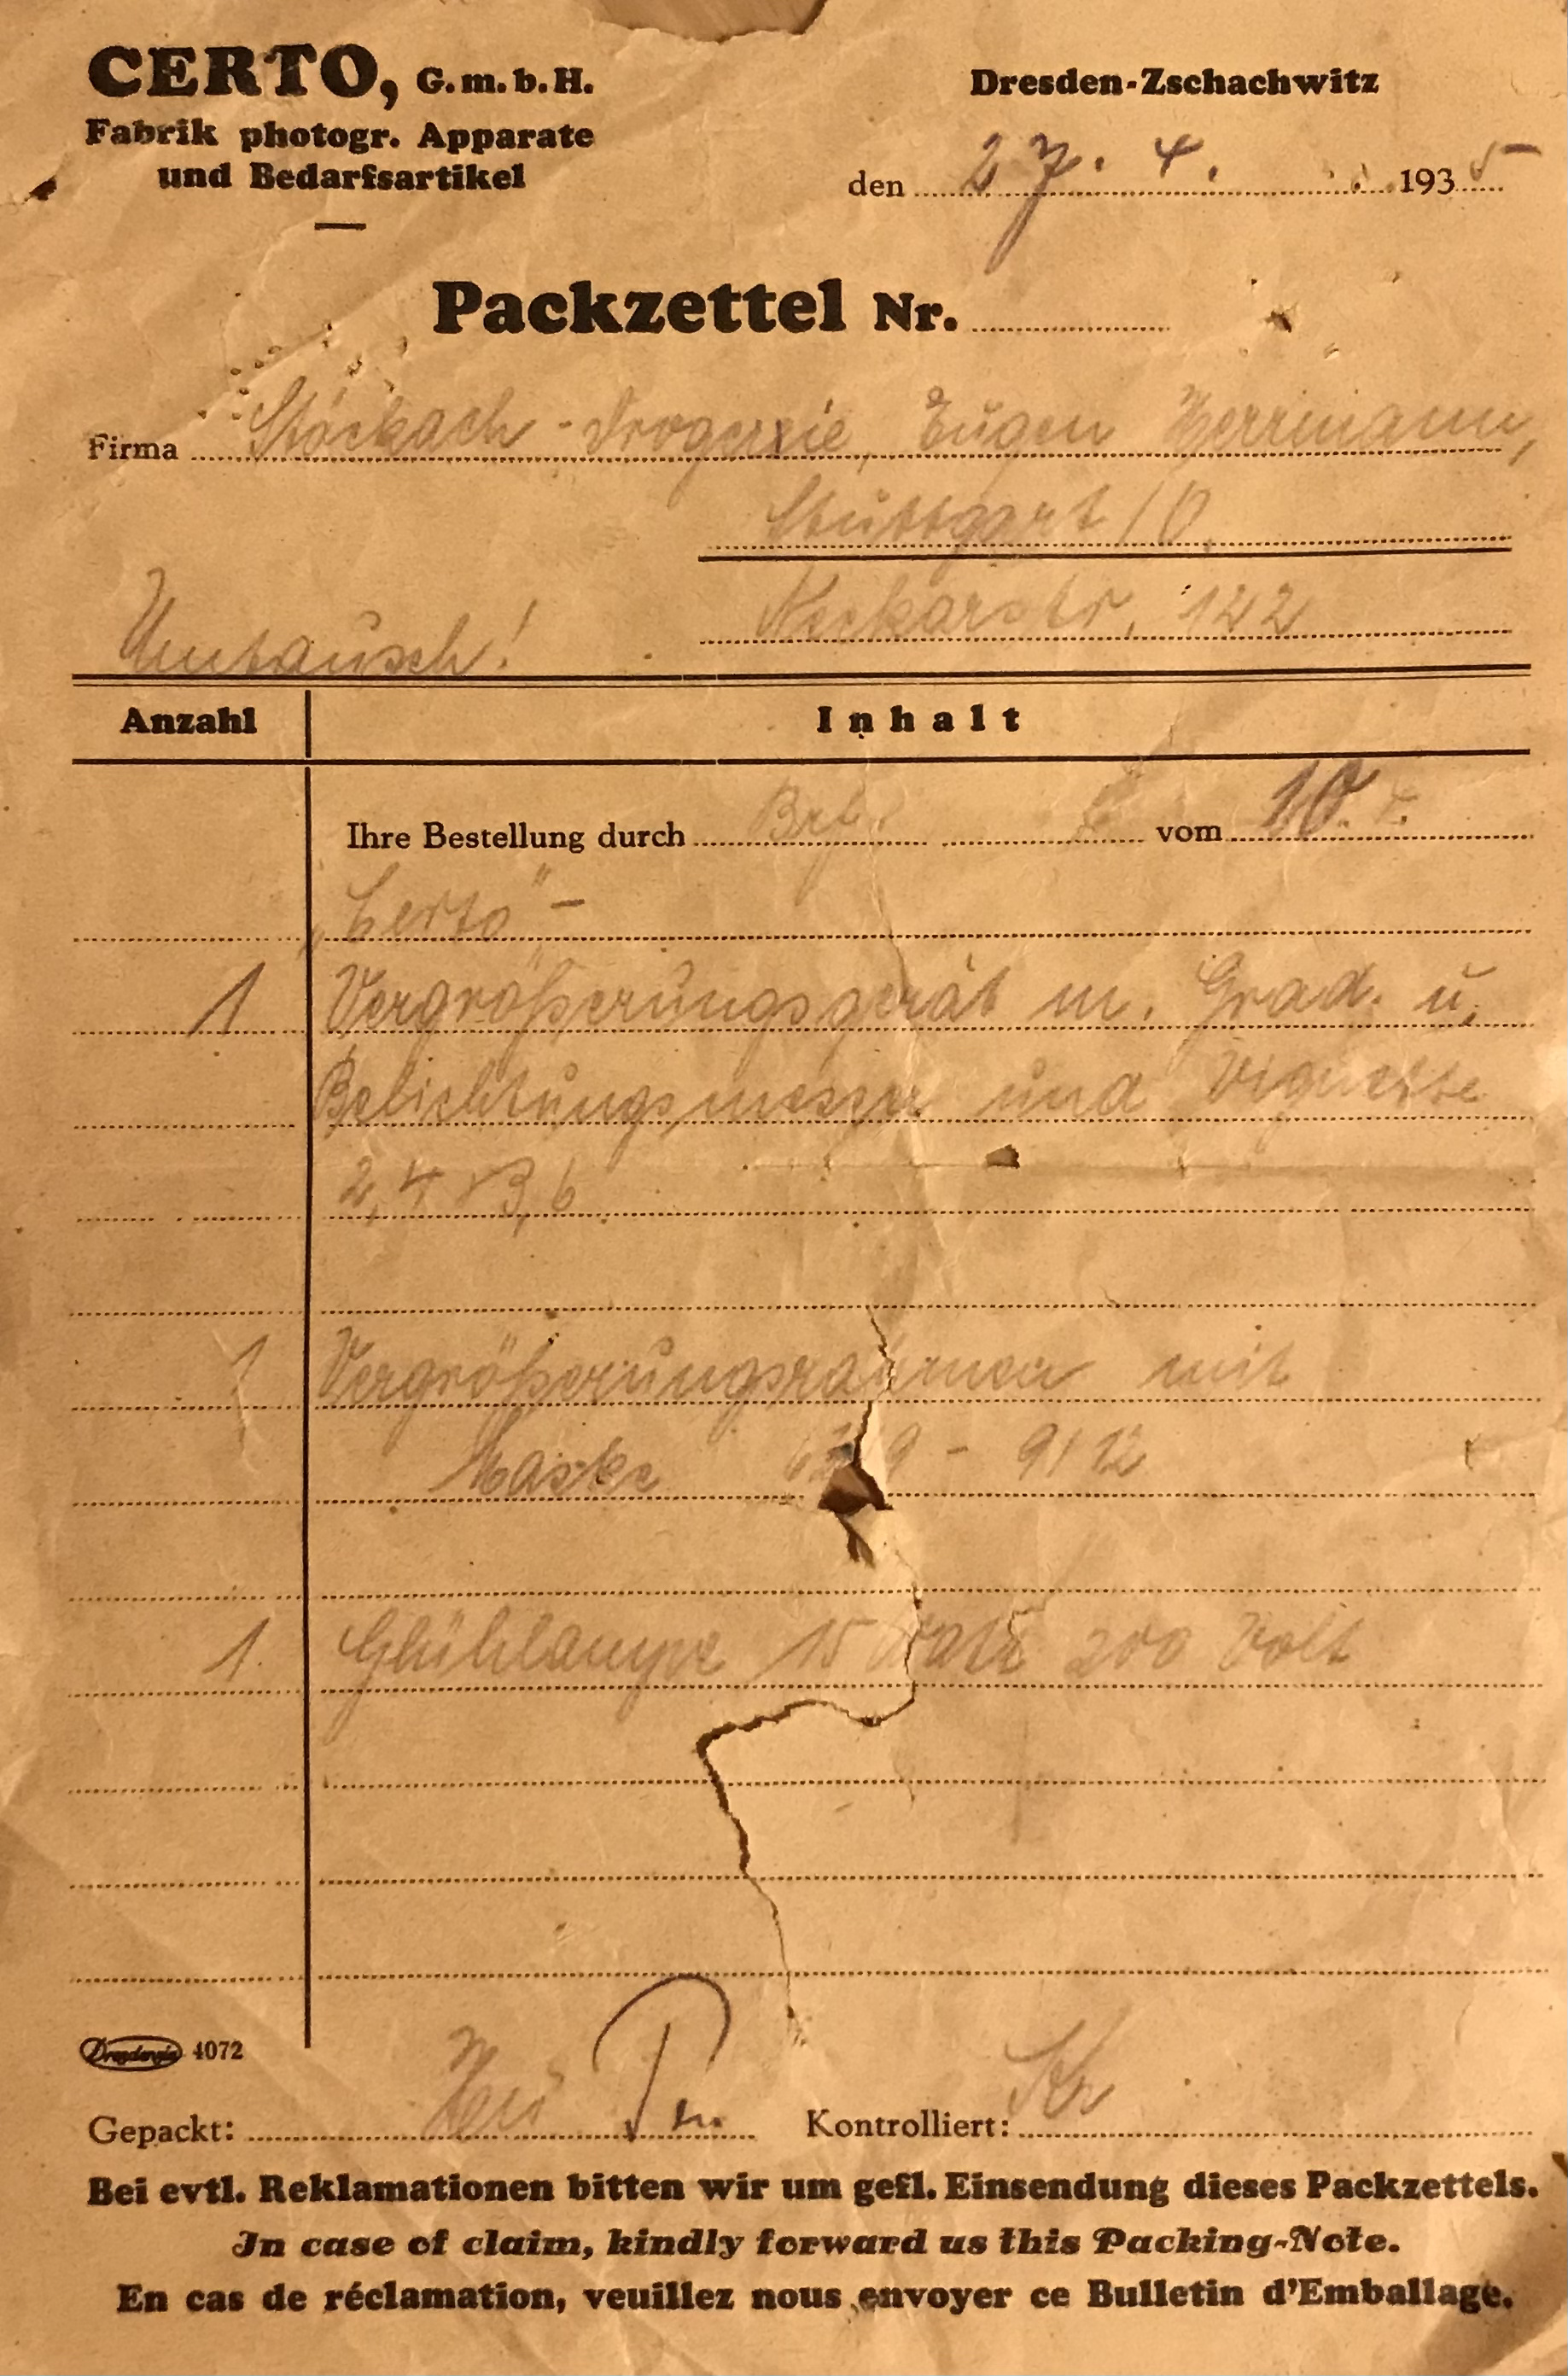 CERTO, G.m.b.H.
Fabrik photogr. Apparate
und Bedarfsartikel
Dresden-Zschachwitz
den 27. 4. 1935
Packzettel Nr.
Firma Stöckach-Drogerie, Eugen Herrmann,
Stuttgart / O.
Neckarstr. 122
Umtausch!
Anzahl Inhalt
Ihre Bestellung durch vom 10. 4.
„Certo"-
1 Vergrößerungsgerät m. Grad. u.
Belichtungsmesser und Vignette
2,4 x 3,6
1 Vergrößerungsrahmen mit
Maske 9 - 9/12
1 Glühlampe 15 Watt 200 Volt
4072
Gepackt: Kontrolliert: Kr
Bei evtl. Reklamationen bitten wir um gefl. Einsendung dieses Packzettels.
In case of claim, kindly forward us this Packing-Note.
En cas de réclamation, veuillez nous envoyer ce Bulletin d'Emballage.